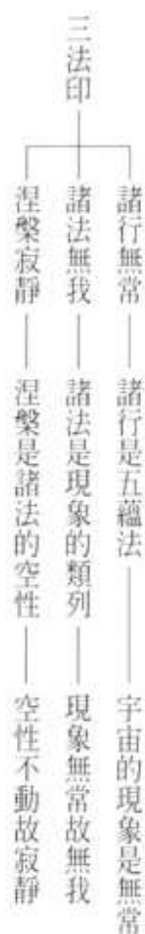 三法印
諸行無常 諸行是五蘊法 宇宙的現象是無常
諸法無我 諸法是現象的類列 現象無常故無我
涅槃寂靜 涅槃是諸法的空性 空性不動故寂靜